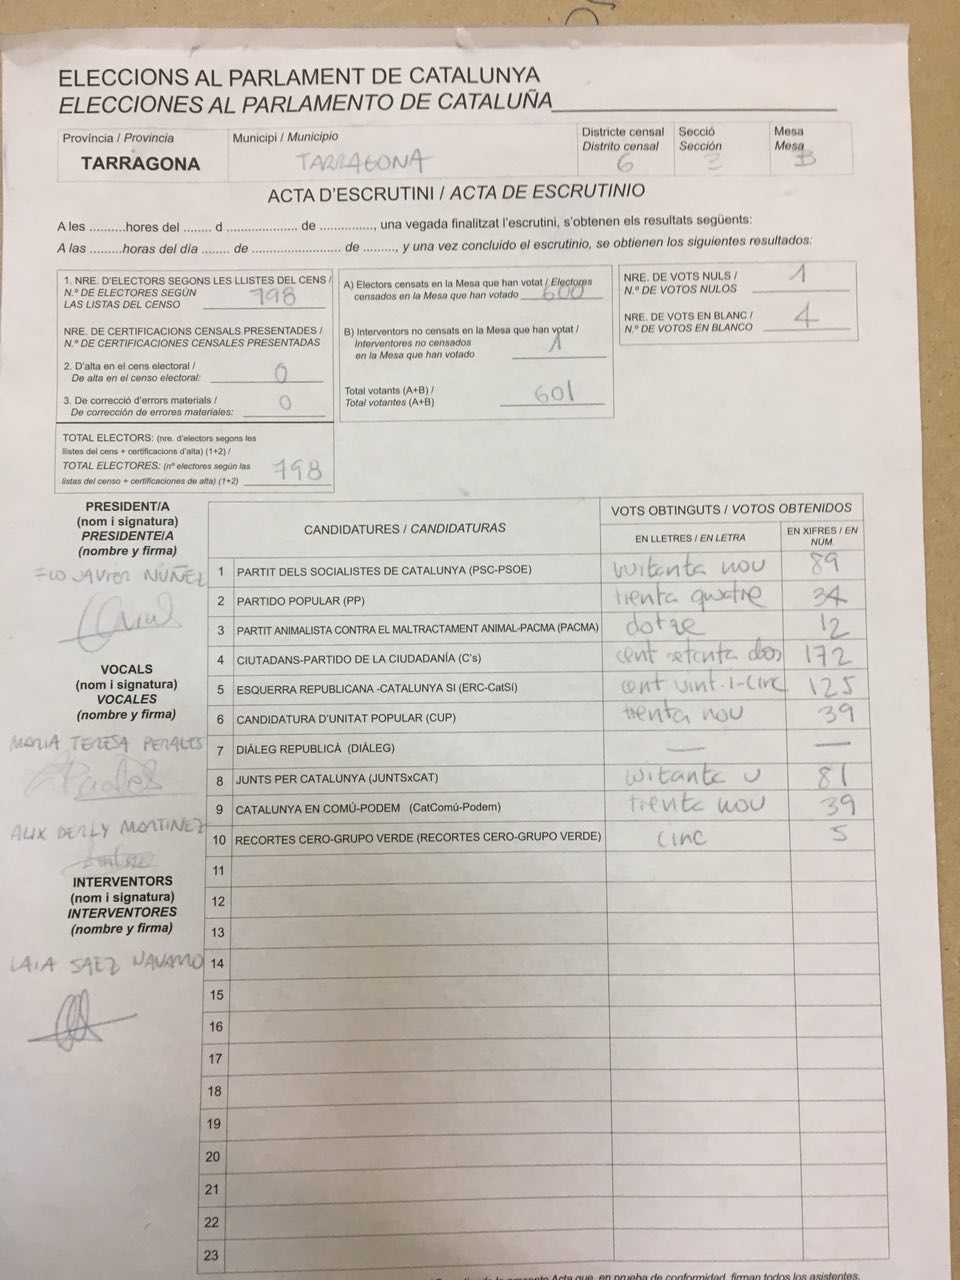 ELECCIONS AL PARLAMENT DE CATALUNYA
ELECCIONES AL PARLAMENTO DE CATALUÑA
Província / Provincia
TARRAGONA
Municipi / Municipio
TARRAGONA
Districte censal
Distrito censal
6
Secció
Sección
Mesa
Mesa
B
ACTA D'ESCRUTINI / ACTA DE ESCRUTINIO
A les ..........hores del ........ d .................... de ..............., una vegada finalitzat l'escrutini, s'obtenen els resultats següents:
A las .........horas del día ...... de ......................... de ........., y una vez concluido el escrutinio, se obtienen los siguientes resultados:
1. NRE. D'ELECTORS SEGONS LES LLISTES DEL CENS /
N.º DE ELECTORES SEGÚN
LAS LISTAS DEL CENSO 798
NRE. DE CERTIFICACIONS CENSALS PRESENTADES /
N.º DE CERTIFICACIONES CENSALES PRESENTADAS
2. D'alta en el cens electoral /
De alta en el censo electoral: 0
3. De correcció d'errors materials /
De corrección de errores materiales: 0
TOTAL ELECTORS: (nre. d'electors segons les
llistes del cens + certificacions d'alta) (1+2) /
TOTAL ELECTORES: (nº electores según las
listas del censo + certificaciones de alta) (1+2) 798
A) Electors censats en la Mesa que han votat / Electores
censados en la Mesa que han votado 600
B) Interventors no censats en la Mesa que han votat /
Interventores no censados
en la Mesa que han votado 1
Total votants (A+B) /
Total votantes (A+B) 601
NRE. DE VOTS NULS /
N.º DE VOTOS NULOS 1
NRE. DE VOTS EN BLANC /
N.º DE VOTOS EN BLANCO 4
PRESIDENT/A
(nom i signatura)
PRESIDENTE/A
(nombre y firma)
FCO JAVIER NÚÑEZ
VOCALS
(nom i signatura)
VOCALES
(nombre y firma)
MARIA TERESA PERALES
ALIX DERLY MARTINEZ
INTERVENTORS
(nom i signatura)
INTERVENTORES
(nombre y firma)
LAIA SAEZ NAVARRO
CANDIDATURES / CANDIDATURAS
VOTS OBTINGUTS / VOTOS OBTENIDOS
EN LLETRES / EN LETRA
EN XIFRES / EN
NÚM.
1 PARTIT DELS SOCIALISTES DE CATALUNYA (PSC-PSOE) vuitanta nou 89
2 PARTIDO POPULAR (PP) trenta quatre 34
3 PARTIT ANIMALISTA CONTRA EL MALTRACTAMENT ANIMAL-PACMA (PACMA) dotze 12
4 CIUTADANS-PARTIDO DE LA CIUDADANÍA (C's) cent setanta dos 172
5 ESQUERRA REPUBLICANA -CATALUNYA SI (ERC-CatSí) cent vint-i-cinc 125
6 CANDIDATURA D'UNITAT POPULAR (CUP) trenta nou 39
7 DIÀLEG REPUBLICÀ (DIÀLEG) — —
8 JUNTS PER CATALUNYA (JUNTSxCAT) vuitanta u 81
9 CATALUNYA EN COMÚ-PODEM (CatComú-Podem) trenta nou 39
10 RECORTES CERO-GRUPO VERDE (RECORTES CERO-GRUPO VERDE) cinc 5
11
12
13
14
15
16
17
18
19
20
21
22
23
presente Acta que, en prueba de conformidad, firman todos los asistentes.